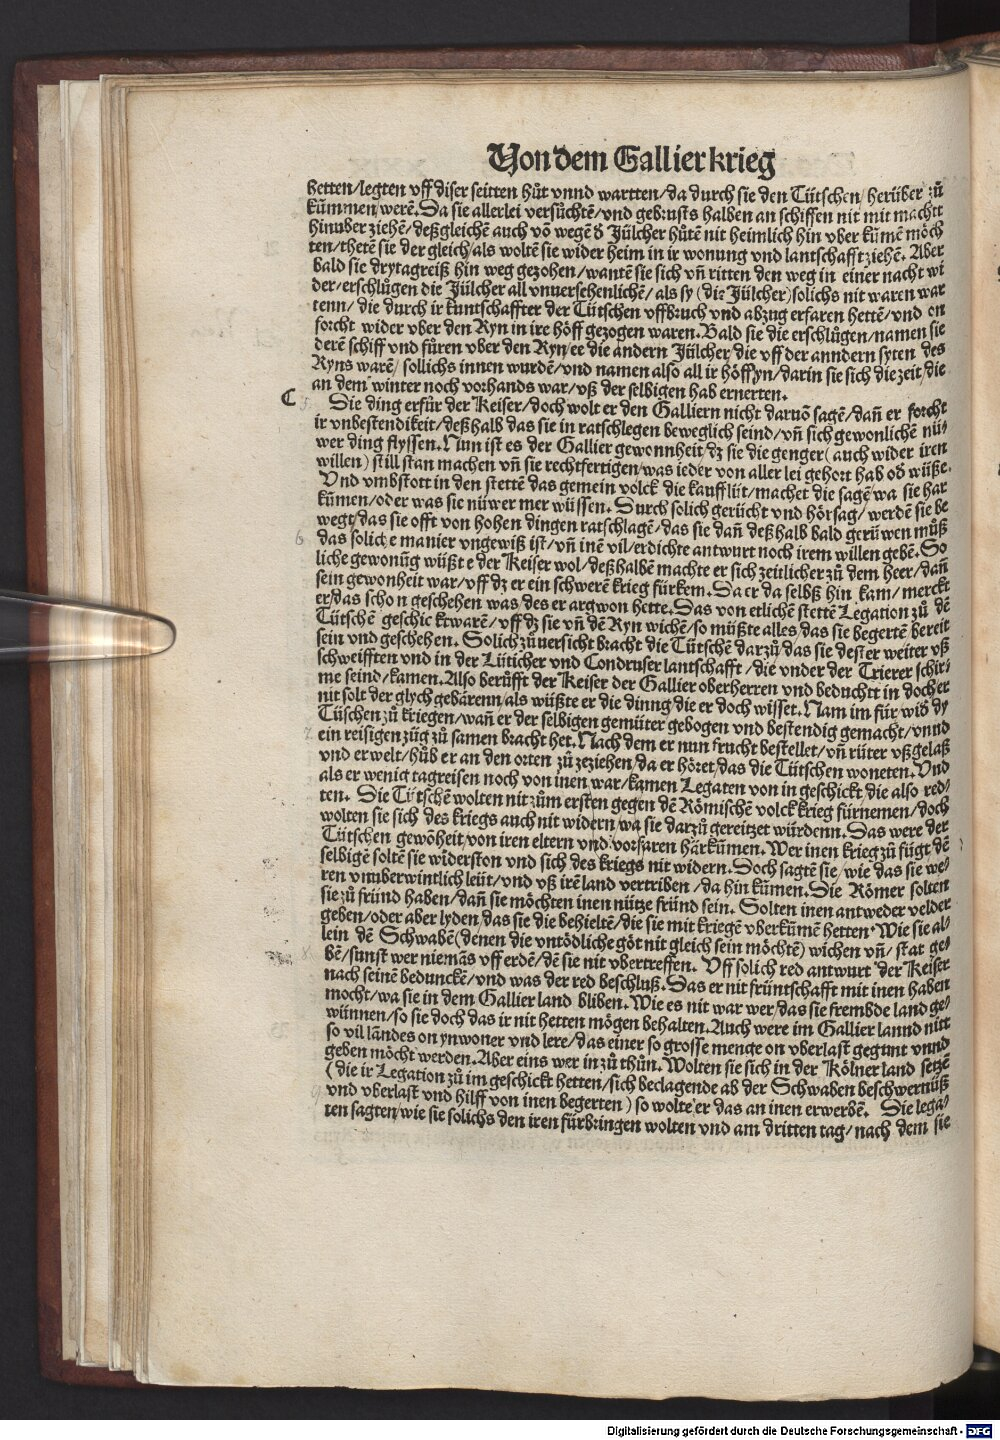 Von dem Gallier krieg
hetten/legten vff diser seitten hůt vnnd wartten/da durch sie den Tütschen/herüber zů
kům̃men/werẽ. Da sie allerlei versůchtẽ/vnd gebrusts halben an schiffen nit mit machtt
hinuber ziehẽ/deßgleichẽ auch võ wegẽ ð Jülcher hůtẽ nit heimlich hin vber kümẽ möch
ten/thetẽ sie der gleich/als woltẽ sie wider heim in ir wonung vnd lantschafft ziehẽ. Aber
bald sie drytagreiß hin weg gezohen/wantẽ sie sich vñ ritten den weg in einer nacht wi
der/erschlůgen die Jülcher all vnuersehenlichẽ/als sy (die Jülcher) solichs nit waren war
tenn/die durch ir kuntschaffter der Tütschen vffbruch vnd abzug erfaren hettẽ/vnd on
forcht wider vber den Ryn in ire höff gezogen waren. Bald sie die erschlůgen/namen sie
derẽ schiff vnd fůren vber den Ryn/ee die andern Jülcher/die vff der anndern syten des
Ryns warẽ/sollichs innen wurdẽ/vnd namen also all ir höff yn/darin sie sich die zeit/die
an dem winter noch vorhands war/vß der selbigen hab ernerten.
C Die ding erfůr der Keiser/doch wolt er den Galliern nicht daruõ sagẽ/dañ er forcht
ir vnbestendikeit/deßhalb das sie in ratschlegen beweglich seind/vñ sich gewonlichẽ nü⸗
wer ding flyssen. Nun ist es der Gallier gewonnheit/dz sie die genger (auch wider iren
willen) still stan machen vñ sie rechtfertigen/was ieder von aller lei gehort hab oð wüße.
Vnd vmbstott in den stettẽ das gemein volck die kaufflüt/machet die sagẽ wa sie har
kům̃en/oder was sie nüwer mer wüssen. Durch solich gerücht vnd hörsag/werdẽ sie be
wegt/das sie offt von hohen dingen ratschlagẽ/das sie dañ deßhalb bald gerüwen můß
das soliche manier vngewiß ist/vñ inẽ vil/erdichte antwurt noch irem willen gebẽ. So
liche gewonũg wüßte der Keiser wol/deßhalbẽ machte er sich zeitlicher zů dem heer/dañ
sein gewonheit war/vff dz er ein schwerẽ krieg fürkem. Da er da selbß hin kam/merckt
er/das schon geschehen was/des er argwon hette. Das von etlichẽ stettẽ Legation zů dẽ
Tütschẽ geschickt warẽ/vff dz sie vñ dẽ Ryn wichẽ/so můßte alles/das sie begertẽ bereit
sein vnd geschehen. Solich zůuersicht bracht die Tütschẽ darzů/das sie dester weiter vß
schweifften vnd in der Lüticher vnd Condruser lantschafft/die vnder der Trierer schir⸗
me seind/kamen. Also berůfft der Keiser der Gallier oberherren vnd beduchtt in doch er
nit solt der glych gebårenn/als wüßte er die dinng/die er doch wisset. Nam im für/wið dy
Tüschen zů kriegen/wañ er der selbigen gemüter gebogen vnd bestendig gemacht/vnnd
ein reisigen züg zů samen bracht het. Nach dem er nun frucht bestellet/vñ rüter vßgelaß
vnd erwelt/hůb er an den orten zů zeziehen/da er höret/das die Tütschen woneten. Vnd
als er wenig tagreisen noch von inen war/kamen Legaten von in geschickt/die also red⸗
ten. Die Tütschẽ wolten nit zům ersten gegen dẽ Römischẽ volck krieg fürnemen/doch
wolten sie sich des kriegs auch nit widern/wa sie darzů gereitzet würdenn. Das were der
Tütschen gewõheit/von iren eltern vnd vorfaren härkům̃en. Wer inen krieg zů fügt dẽ
selbigẽ soltẽ sie widerston vnd sich des kriegs nit widern. Doch sagtẽ sie/wie das sie we⸗
ren vnuberwintlich leüt/vnd vß irẽ land vertriben/da hin kům̃en. Die Römer solten
sie zů fründ haben/dañ sie möchten inen nütze fründ sein. Solten inen antweder velder
geben/oder aber lyden/das sie die behieltẽ/die sie mit kriegẽ vberkům̃ẽ hetten. Wie sie al⸗
lein dẽ Schwabẽ (denen die vntödliche göt nit gleich sein möchtẽ) wichen vñ/stat ge⸗
bẽ/sunst wer niemãs vff erdẽ/dẽ sie nit vbertreffen. Vff solich red antwurt der Keiser
nach seinẽ beduncken/vnd was der red beschluß. Das er nit früntschafft mit inen haben
mocht/wa sie in dem Gallier land bliben. Wie es nit war wer/das sie frembde land ge⸗
wünnen/so sie doch das ir nit hetten mögen behalten. Auch were im Gallier lannd nitt
so vil landes on ynwoner vnd lere/das einer so grosse menge on vberlast gegunt vnnd
geben möcht werden. Aber eins wer in zů thůn. Wolten sie sich in der Kölner land setzẽ
(die ir Legation zů im geschickt hetten/sich beclagende ab der Schwaben beschwernüß
vnd vberlast vnd hilff von inen begerten) so wolte er das an inen erwerbẽ. Die lega⸗
ten sagten/wie sie solichs den iren fürbringen wolten vnd am dritten tag/nach dem sie
Digitalisierung gefördert durch die Deutsche Forschungsgemeinschaft - DFG